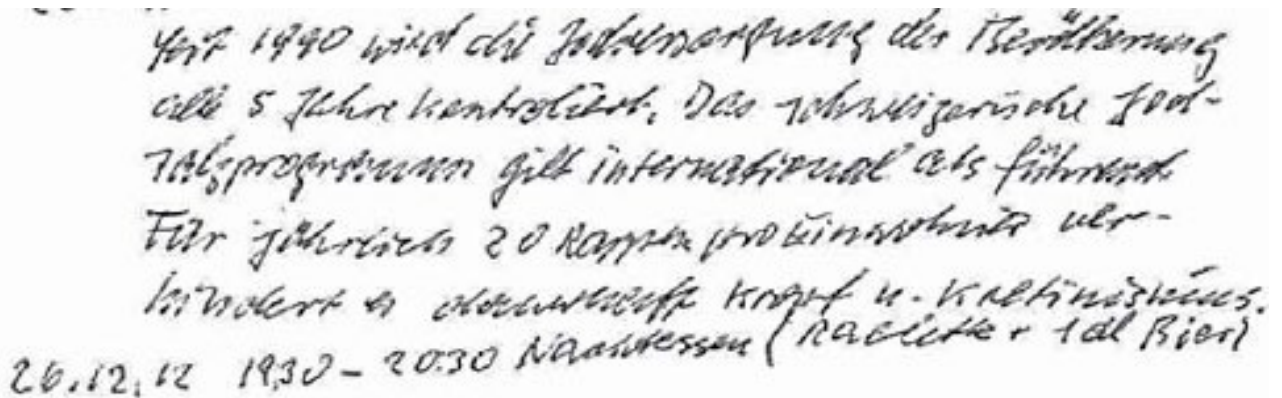 Seit 1990 wird die Jodversorgung der Bevölkerung
alle 5 Jahre kontrolliert. Das schweizerische Jod-
salzprogramm gilt international als führend.
Für jährlich 20 Rappen pro Einwohner ver-
hindert es dauerhaft Kropf u. Kretinismus.
26.12.12 1930 - 20.30 Nachtessen (Raclette + 1 dl Bier)